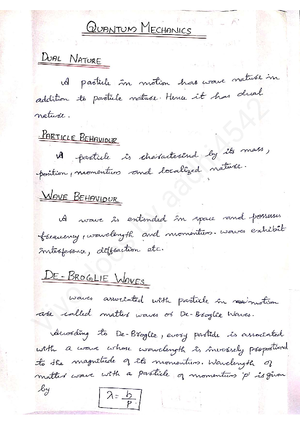 QUANTUM MECHANICS
DUAL NATURE
A particle in motion has wave nature in
addition to particle nature. Hence it has dual
nature.
PARTICLE BEHAVIOUR
A particle is characterised by its mass,
position, momentum and localized nature.
WAVE BEHAVIOUR
A wave is extended in space and possesses
frequency, wavelength and momentum. waves exhibit
interference, diffraction etc.
DE-BROGLIE WAVES
waves associated with particle in motion
are called matter waves or De-Broglie Waves.
According to De-Broglie, every particle is associated
with a wave whose wavelength is inversely proportional
to the magnitude of its momentum. Wavelength of
matter wave with a particle of momentum 'p' is given
by
λ = h/p